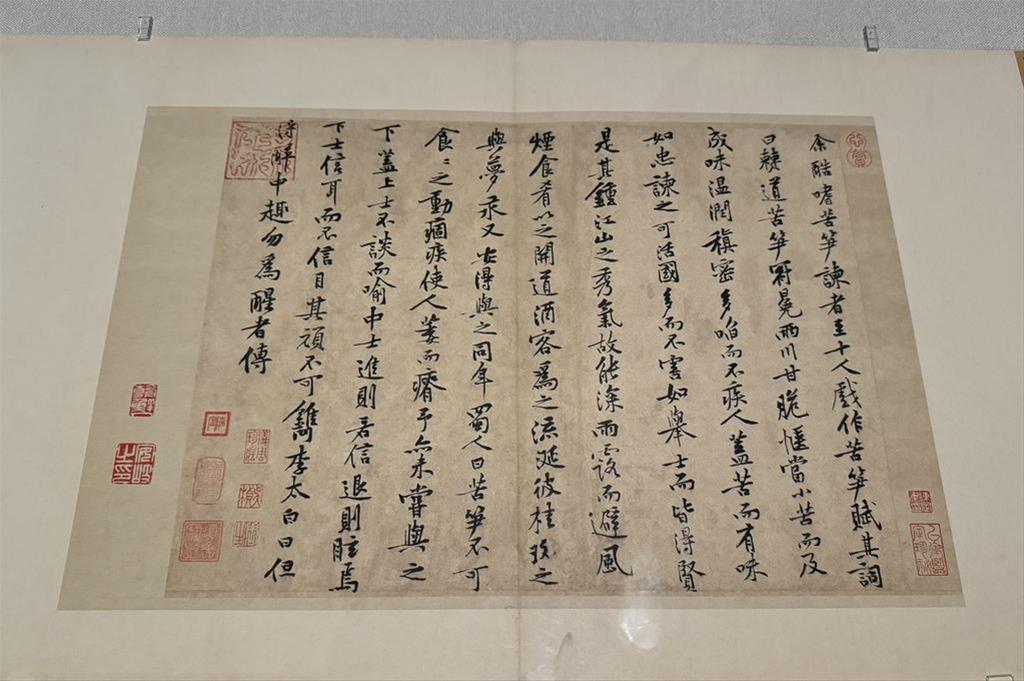 余酷嗜苦笋諫者至十人戲作苦笋賦其詞
曰僰道苦笋冠冕兩川甘脆愜當小苦而反
成味温潤稹密多啗而不疾人蓋苦而有味
如忠諫之可活國多而不害如舉士而皆得賢
是其鍾江山之秀氣故能深雨露而避風
煙食肴以之開道酒客為之流涎彼桂玫之
與夢汞又安得與之同年蜀人曰苦笋不可
食〻之動痼疾使人萎而瘠予亦未嘗與之
下蓋上士不談而喻中士進則若信退則眩焉
下士信耳而不信目其頑不可鐫李太白曰但
得醉中趣勿為醒者傳